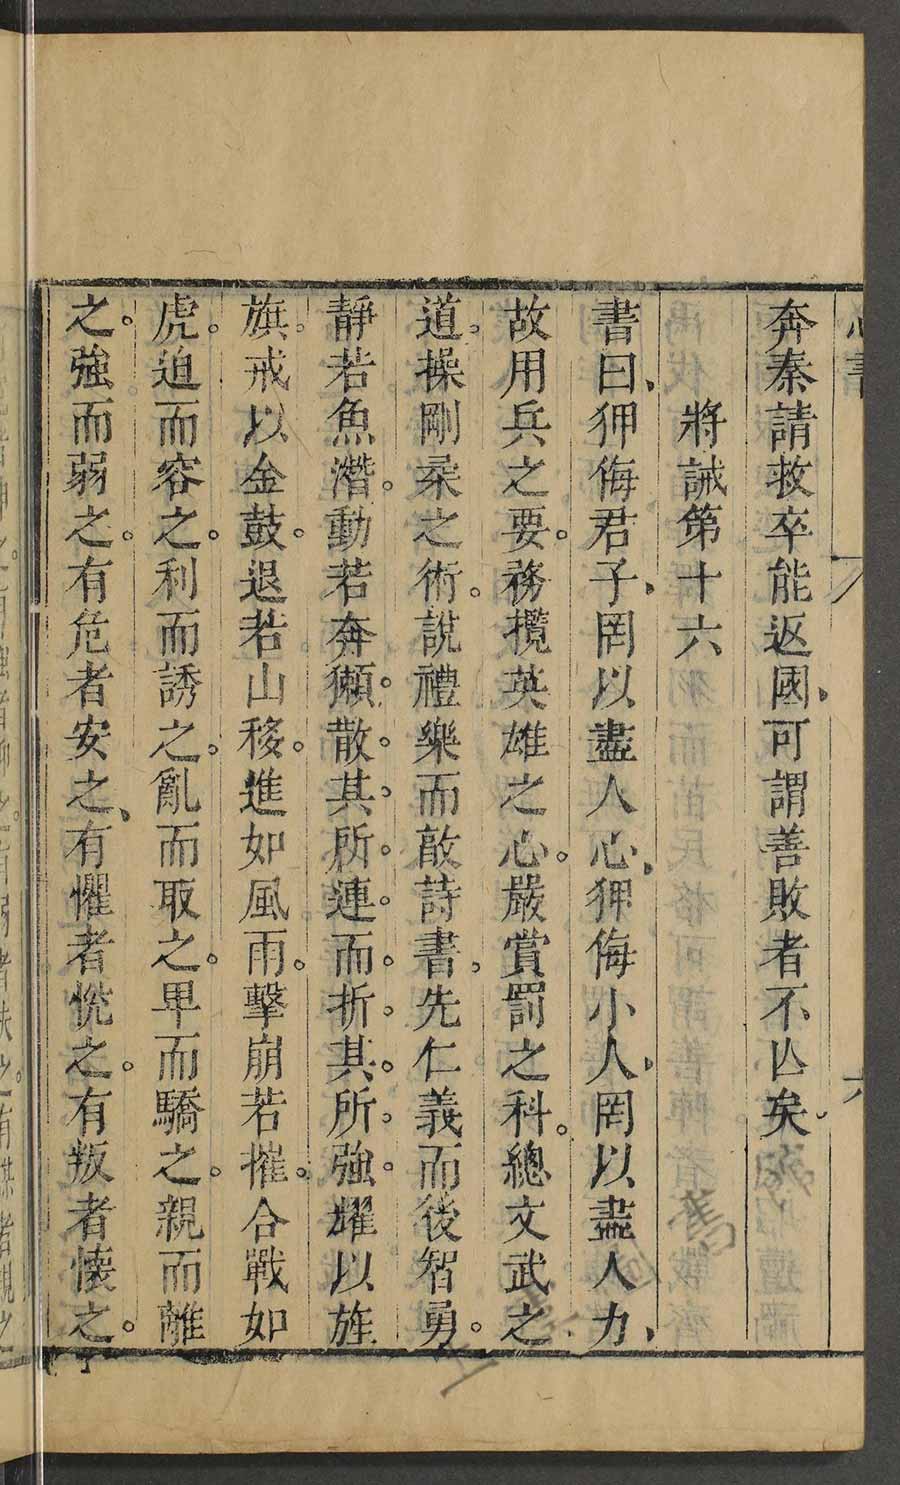 奔秦請救卒能返國、可謂善敗者不亾矣、
將誡第十六
書曰、狎侮君子、罔以盡人心、狎侮小人、罔以盡人力、
故用兵之要。務攬英雄之心。嚴賞罰之科。總文武之
道。操剛柔之術。說禮樂而敵詩書、先仁義而後智勇。
靜若魚潛。動若奔獺。散其所連。而折其所強。耀以旌
旗。戒以金鼓。退若山移。進如風雨。擊崩若摧。合戰如
虎。迫而容之。利而誘之。亂而取之。卑而驕之。親而離
之。強而弱之。有危者安之、有懼者恱之。有叛者懷之。